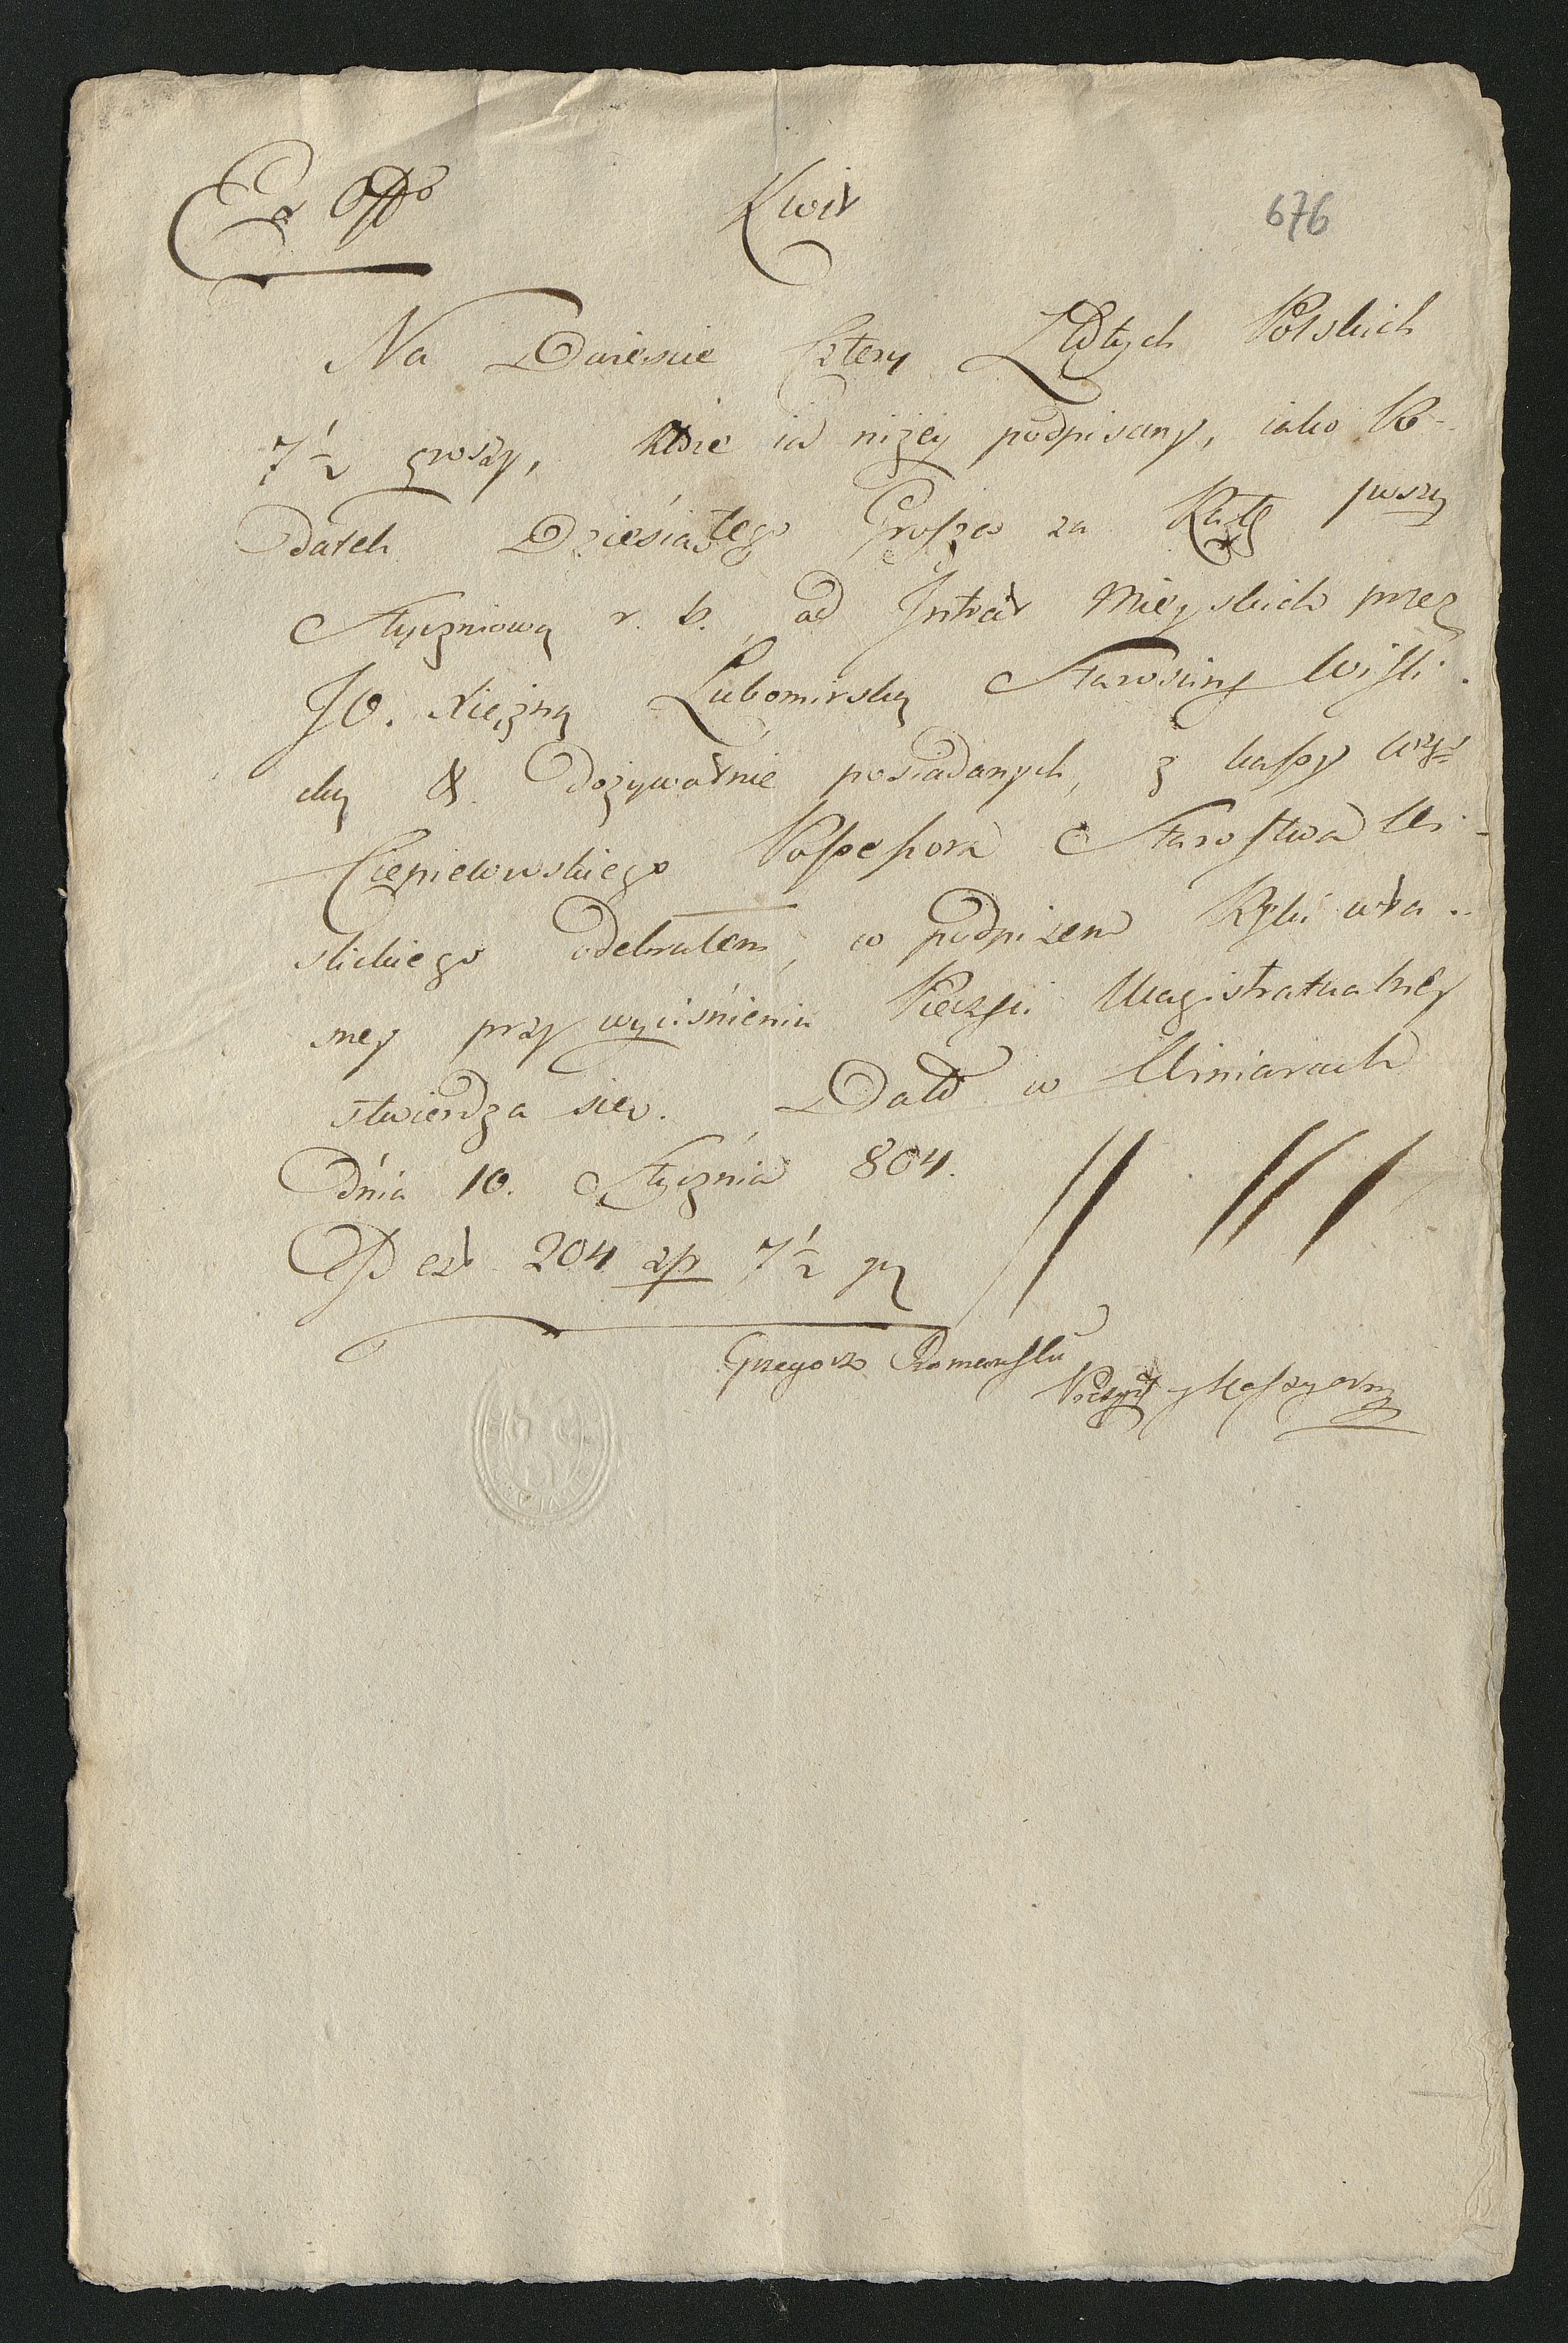 Ex Offo
Kwit
676
Na Dwieście Cztery Złotych Polskich
7½ groszy, które ia niżey podpisany, iako Po-
datek Dziesiątego Grosza za Ratę
Styczniową r. b. od Intrat Mieyskich przez
JO. Xiężnę Lubomirską Starościnę Wisli-
cką & Dożywotnie posiadanych, z kassy
Ciepielowskiego Possessora Starostwa Wi-
slickiego odebrałem, co podpisem Ręki wła-
sney przy wyciśnieniu Pieczęci Magistratualney
stwierdza się. Datt w
Dnia 10. Stycznia 804.
est 204 zp 7½ gr
Grzegorz Romański